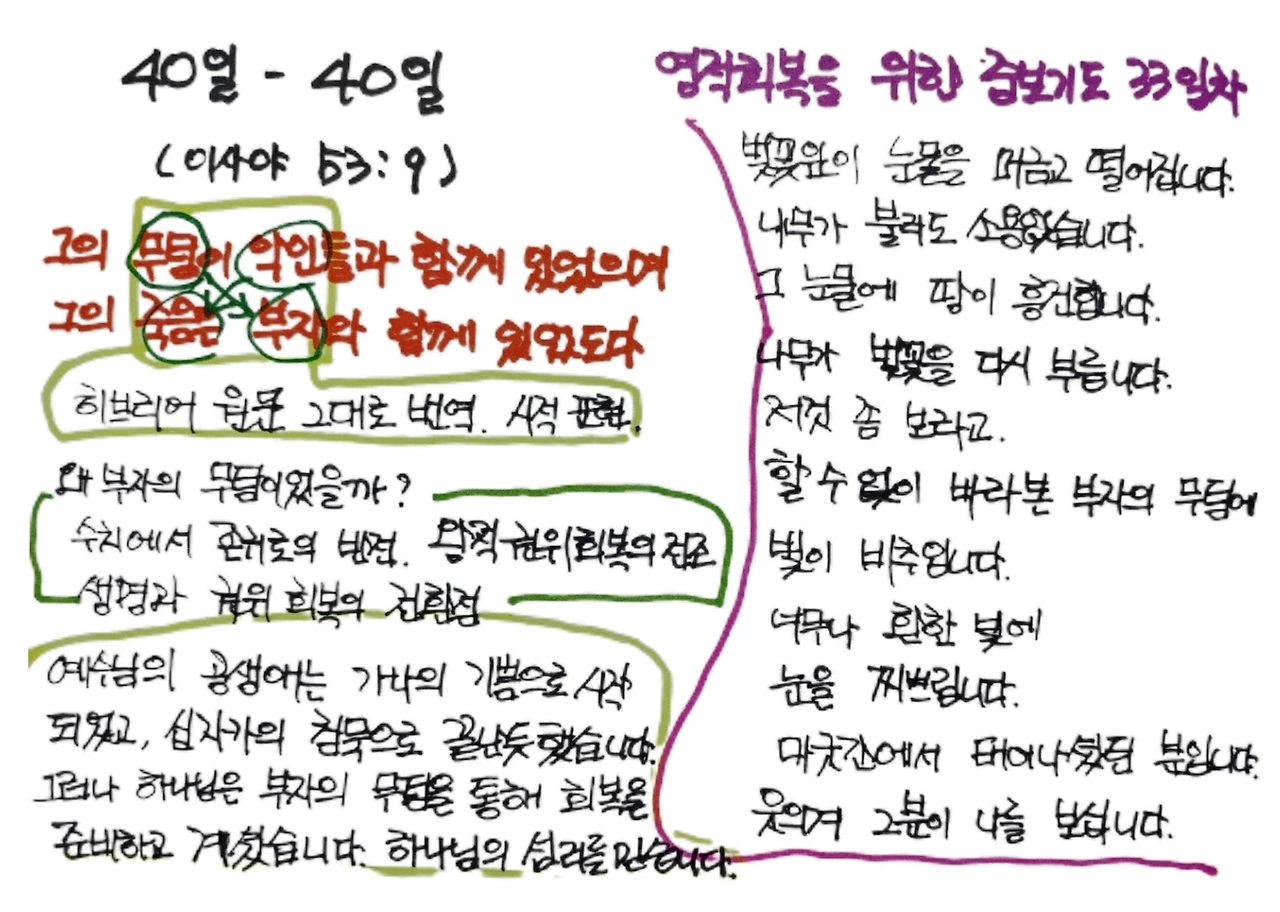 40일 - 40일
(이사야 53:9)
그의 무덤이 악인들과 함께 있었으며
그의 죽음은 부자와 함께 있었도다
히브리어 원문 그대로 번역. 시적 표현.
왜 부자의 무덤이었을까?
수치에서 존귀로의 반전. 왕적 권위 회복의 전조
생명과 권위 회복의 전환점
예수님의 공생애는 가나의 기쁨으로 시작
되었고, 십자가의 침묵으로 끝난듯 했습니다.
그러나 하나님은 부자의 무덤을 통해 회복을
준비하고 계셨습니다. 하나님의 섭리를 믿습니다.
영적회복을 위한 중보기도 33일차
벚꽃잎이 눈물을 머금고 떨어집니다.
나무가 불러도 소용없습니다.
그 눈물에 땅이 흥건합니다.
나무가 벚꽃을 다시 부릅니다.
저것 좀 보라고.
할 수 없이 바라본 부자의 무덤에
빛이 비추입니다.
너무나 환한 빛에
눈을 찌쁘립니다.
마굿간에서 태어나셨던 분입니다.
웃으며 그분이 나를 보십니다.